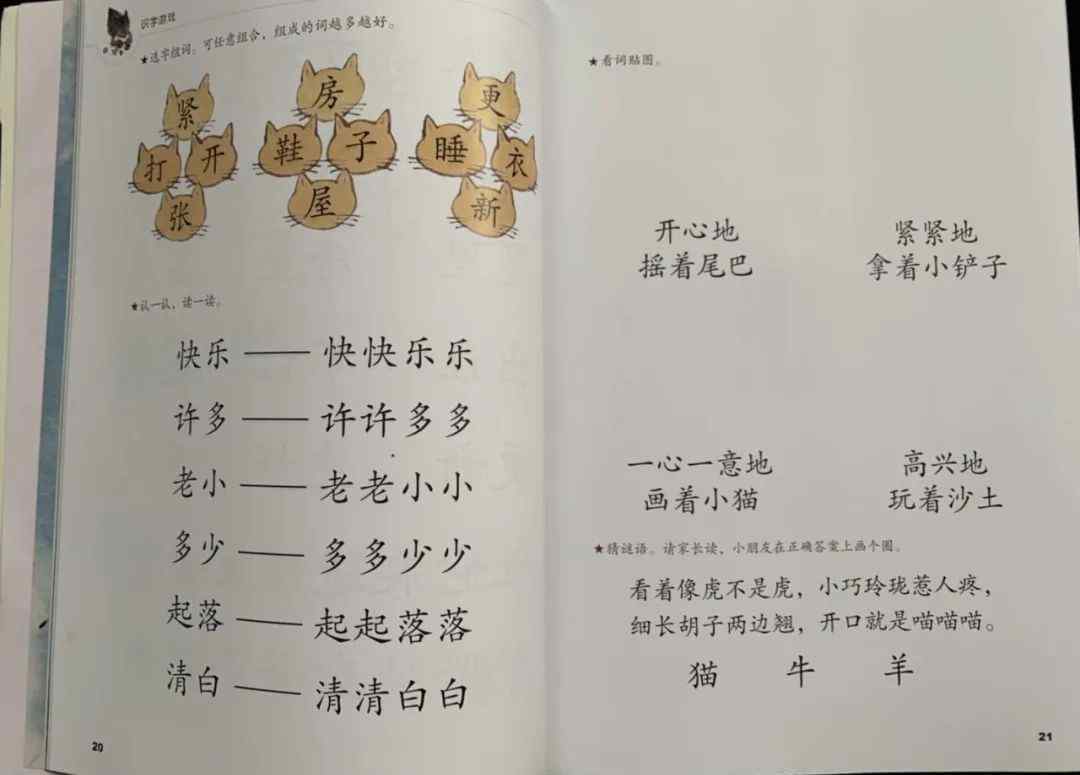 识字游戏
★选字组词。可任意组合，组成的词越多越好。
紧
打 开
张
房
鞋 子
屋
更
睡 衣
新
★认一认，读一读。
快乐——快快乐乐
许多——许许多多
老小——老老小小
多少——多多少少
起落——起起落落
清白——清清白白
20
★看词贴图。
开心地 紧紧地
摇着尾巴 拿着小铲子
一心一意地 高兴地
画着小猫 玩着沙土
★猜谜语。请家长读，小朋友在正确答案上画个圈。
看着像虎不是虎，小巧玲珑惹人疼，
细长胡子两边翘，开口就是喵喵喵。
猫 牛 羊
21